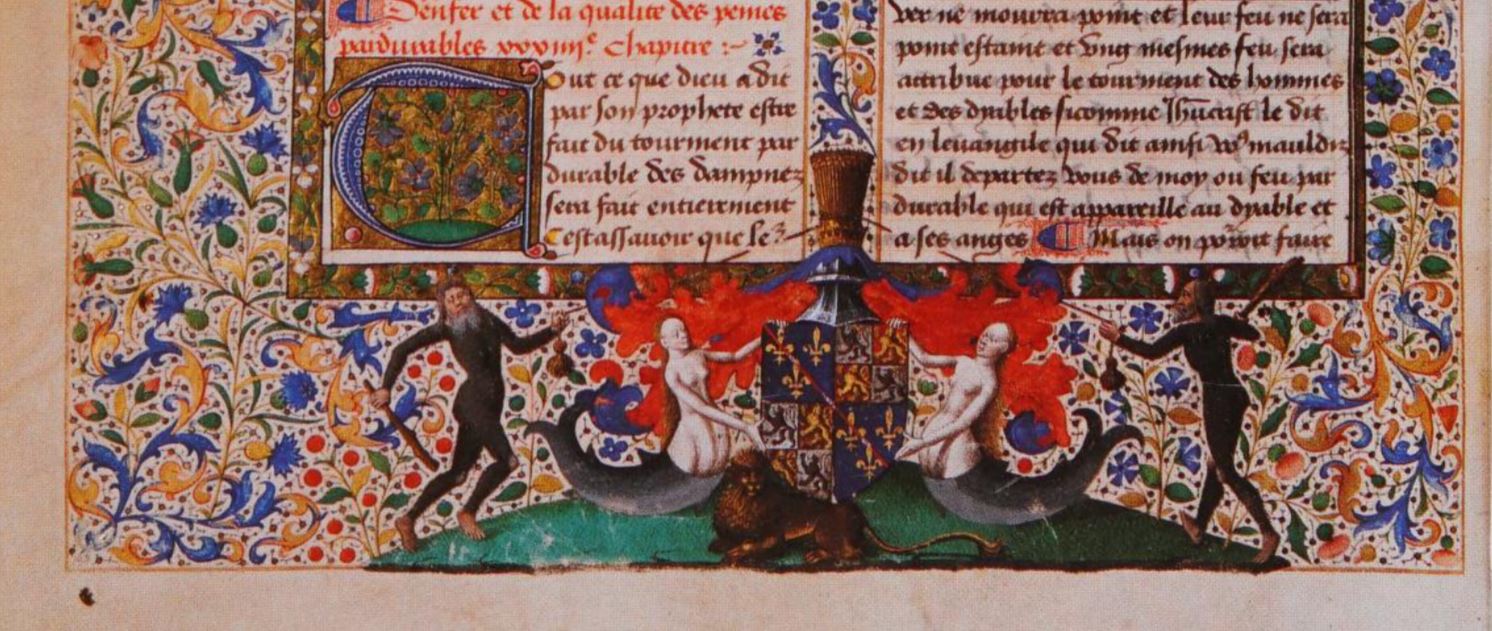 Denfer et de la qualite des peines
pardurables xxxiiiie. Chapitre :~
Tout ce que dieu a dit
par son prophete estre
fait du tourment par
durable des dampnez
sera fait entierement
Cestassavoir que le
ver ne mourra point et leur feu ne sera
point estaint et ung mesmes feu sera
attribue pour le tourment des hommes
et des dyables sicomme Jhucrist le dit
en leuangile qui dit ainsi mauldiz
dit il departez vous de moy ou feu par
durable qui est appareille au dyable et
a ses anges Mais on faire